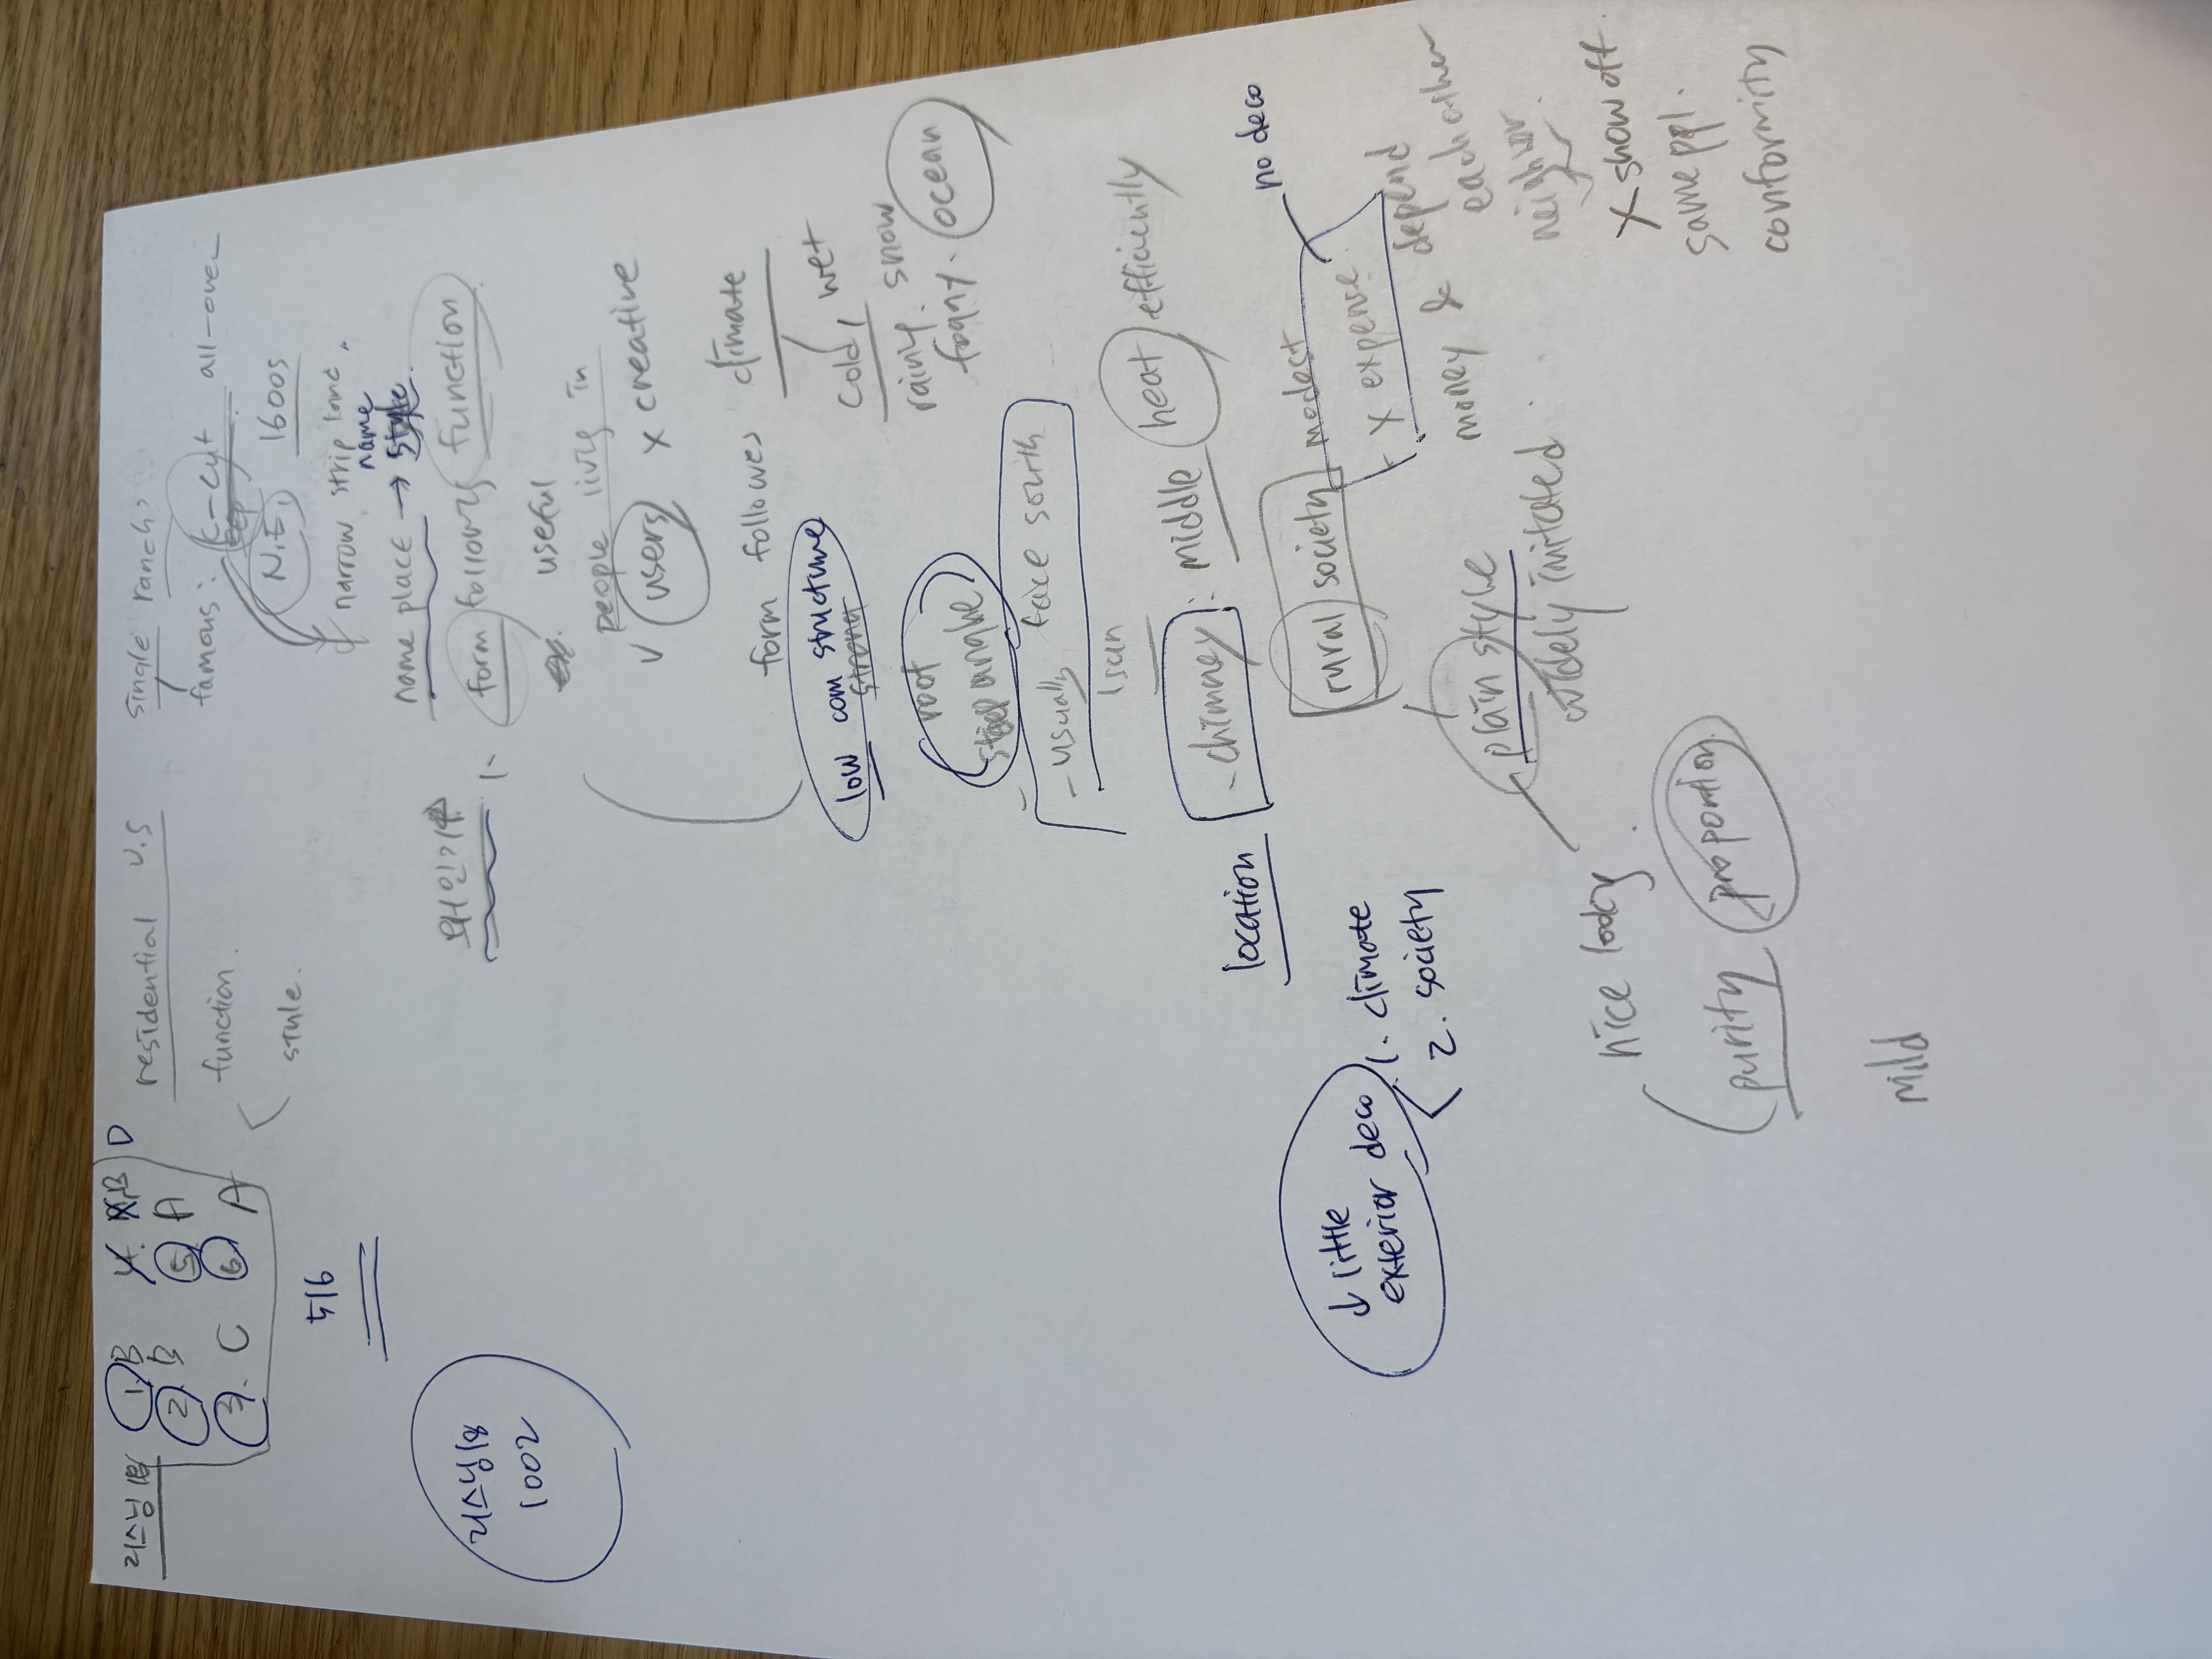 리스닝
1. B
2. B
3. C
4. B D
5 A
6 A
5/6
리스닝18
1002
residential U.S
function.
style.
single ranch,
famous : C-Cod all-over
N.E. 1600s
narrow, strip land.
name
name place → style
왜인기
1. form follows function
useful
people living in
v users x creative
form follows climate
cold wet
rainy. snow
foggy. ocean
low com structure
strong
roof
steep angle
- usually face south
sun
- chimney : middle heat efficiently
location
rural society modest
no deco
x expense
money & depend
each other
x show off
same ppl.
conformity
↓ little
exterior deco
1. climate
2. society
plain style
widely imitated
nice looking
purity proportion
mild